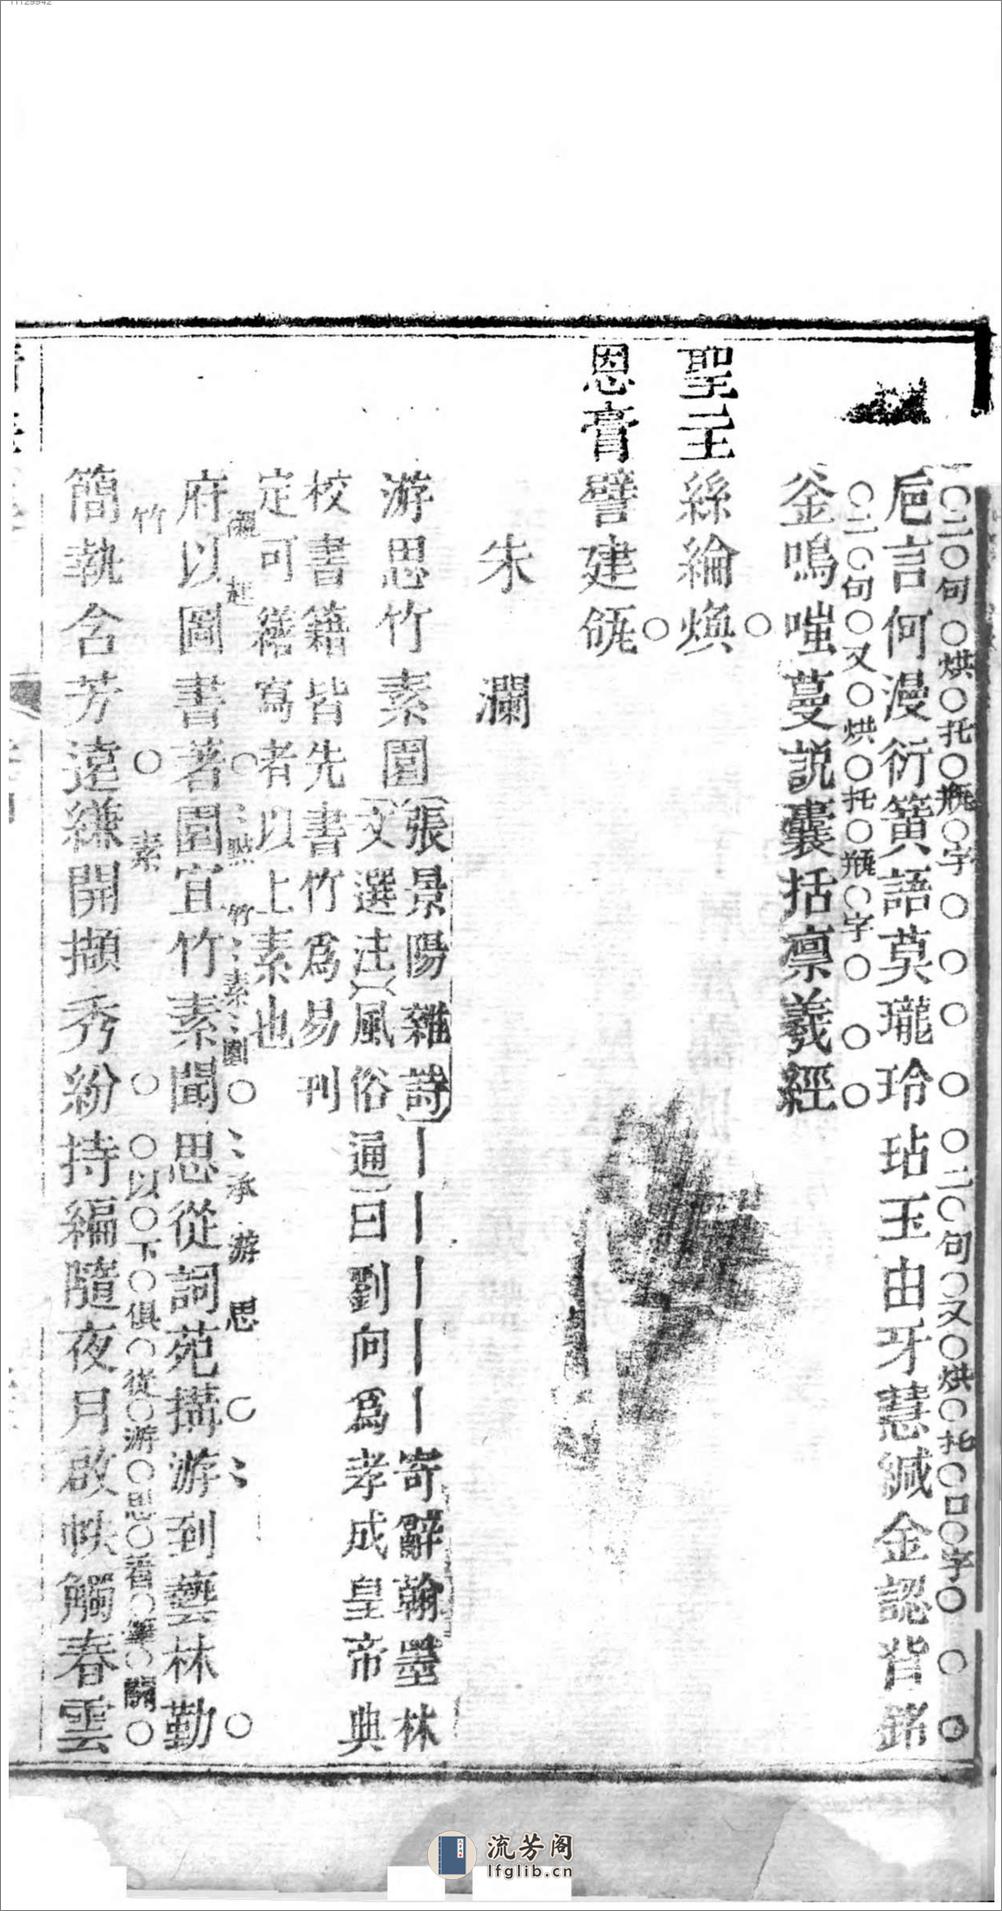 11129942
巵言何漫衍簧語莫瓏玲玷玉由牙慧緘金認背銘
二句烘托瓶字二句又烘托口字
釜鳴嗤蔓説囊括凛羲經
二句又烘托瓶字
聖主絲綸煥
恩膏譬建瓴
朱瀾
游思竹素園
張景陽雜詩寄辭翰墨林
文選注風俗通曰劉向爲孝成皇帝典
校書籍皆先書竹爲易刊
定可繕寫者以上素也
府以圖書著園宜竹素聞思從詞苑搆游到藝林勤
起點竹素園承游思
簡執含芳遠縑開擷秀紛持編隨夜月啟帙觸春雲
竹素以下俱從游思着筆
流芳阁
lfglib.cn